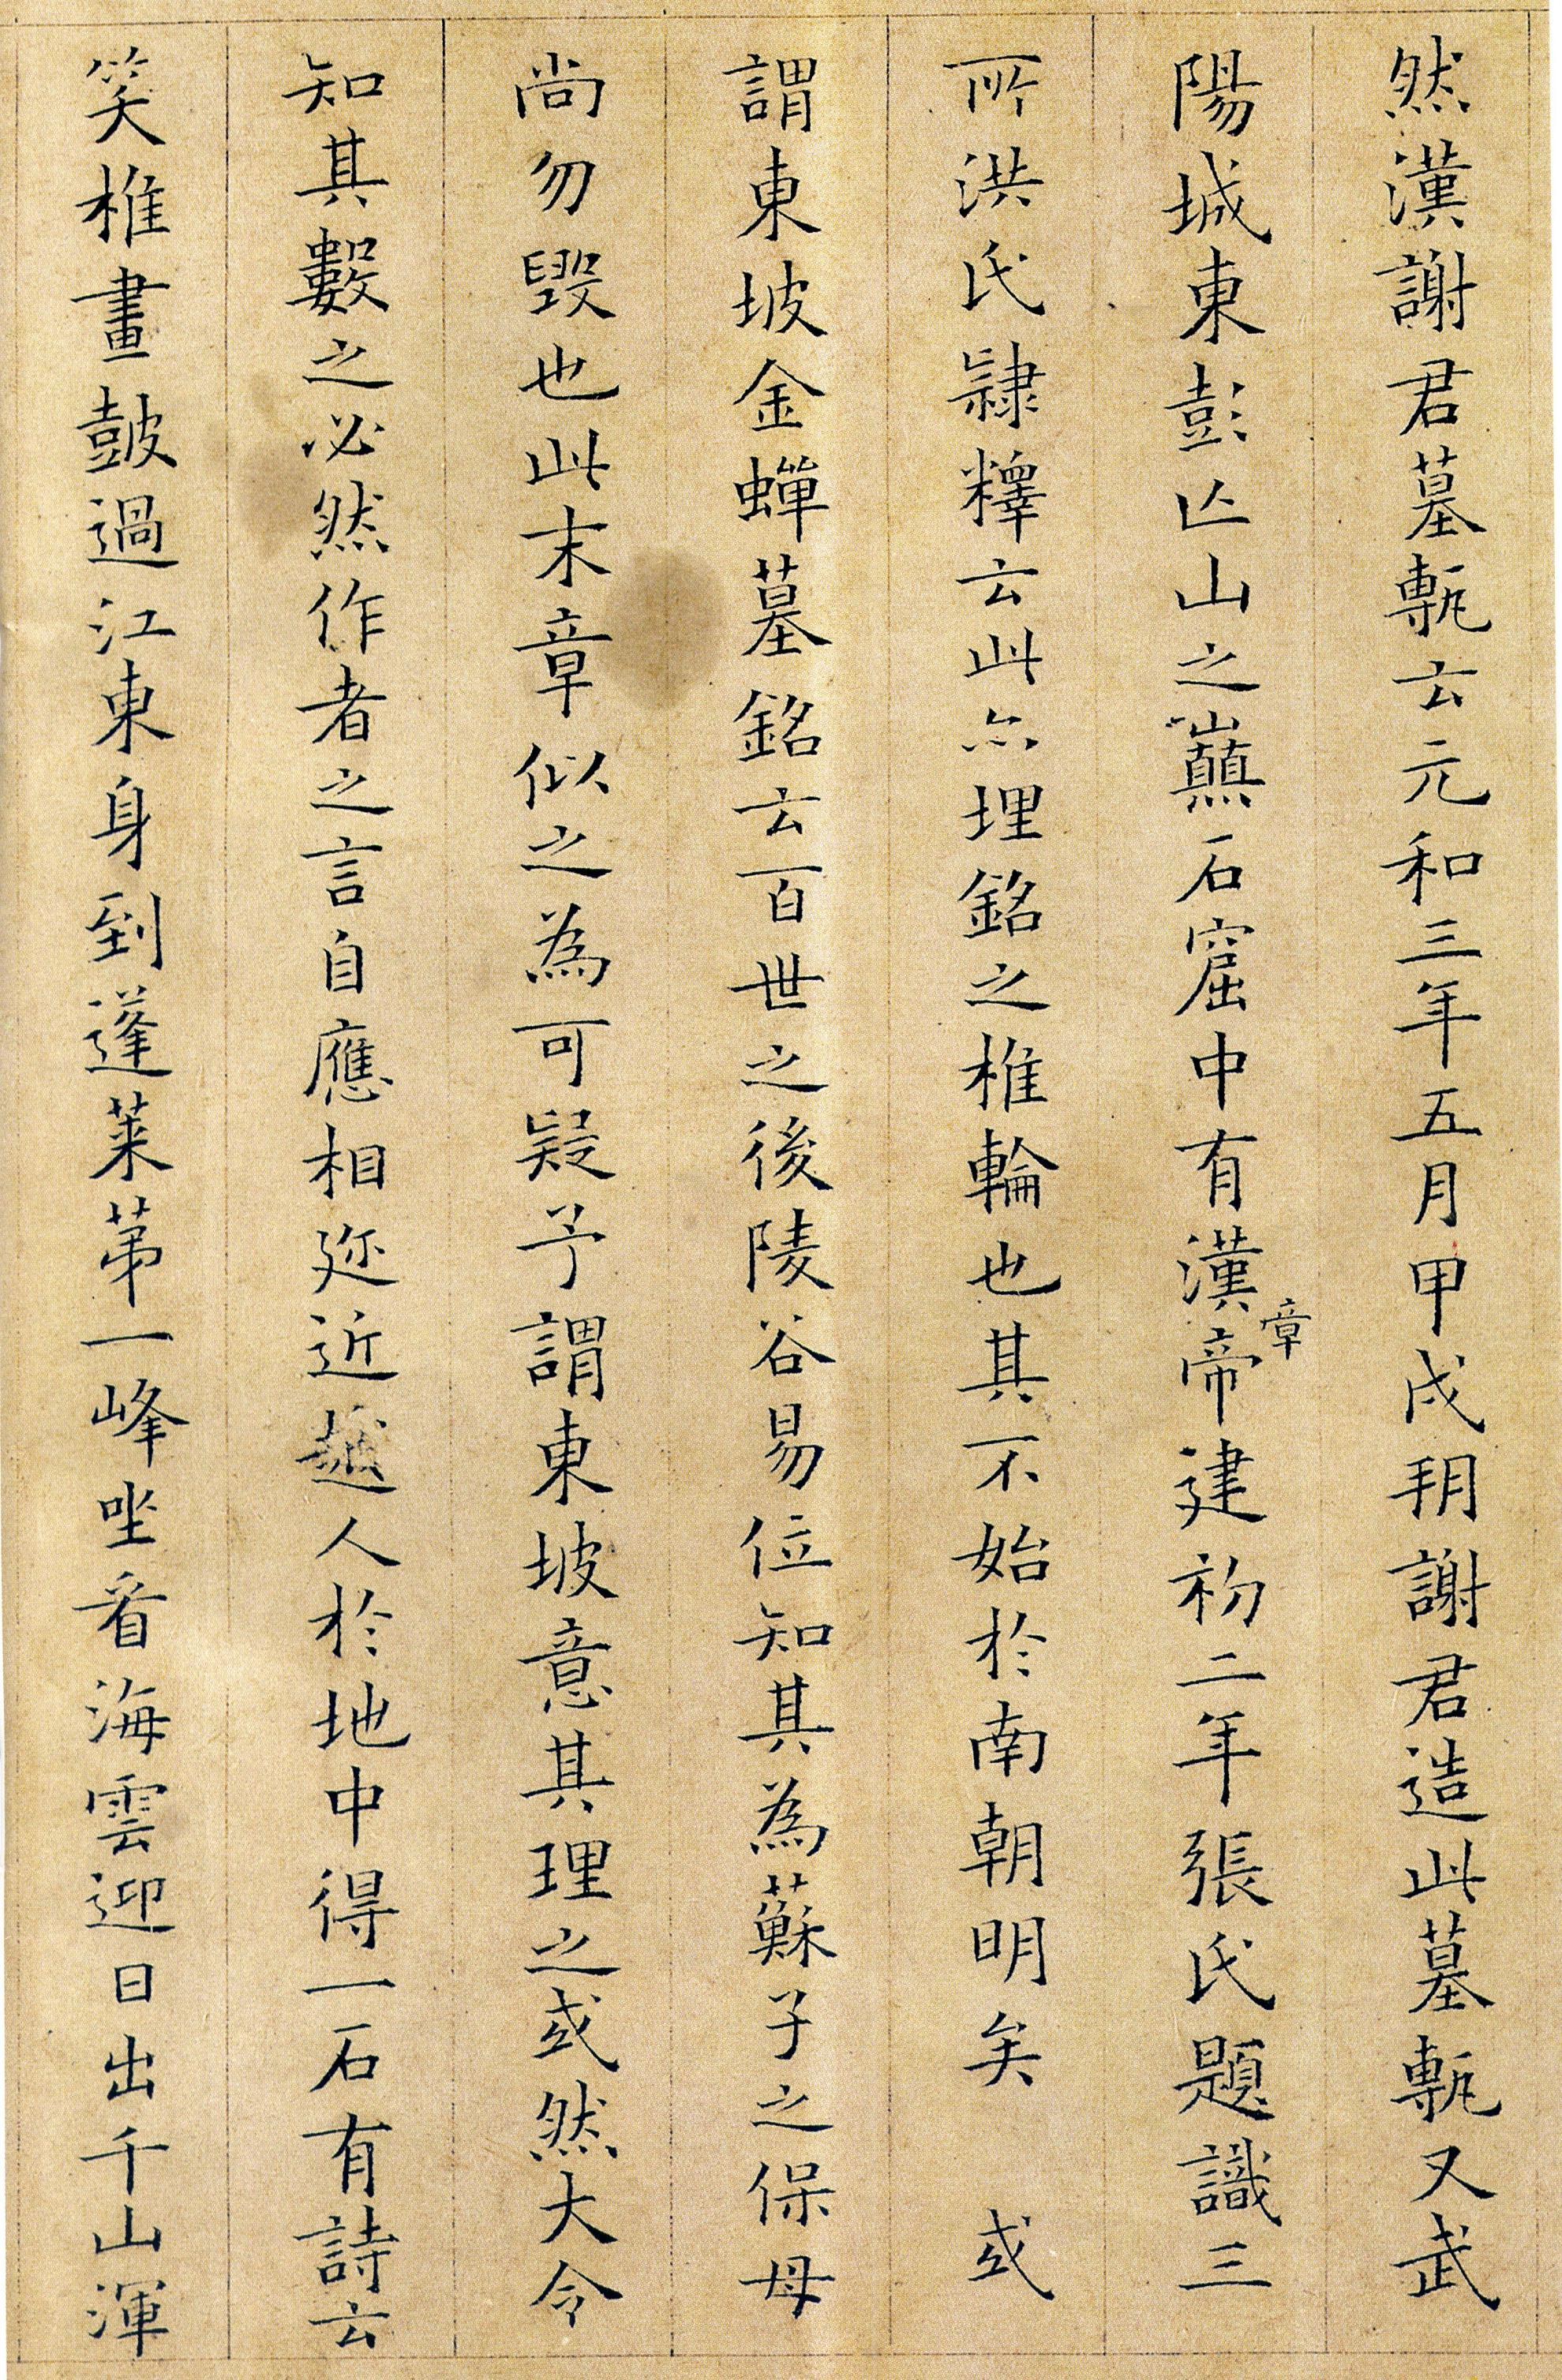 然漢謝君墓甎云元和三年五月甲戌朔謝君造此墓甎又武
陽城東彭亡山之巔石窟中有漢章帝建初二年張氏題識三
所洪氏隸釋云此亦埋銘之椎輪也其不始於南朝明矣　或
謂東坡金蟬墓銘云百世之後陵谷易位知其為蘇子之保母
尚勿毀也此末章似之為可疑予謂東坡意其理之或然大令
知其數之必然作者之言自應相迩近越人於地中得一石有詩云
笑椎畫鼓過江東身到蓬萊第一峰坐看海雲迎日出千山渾